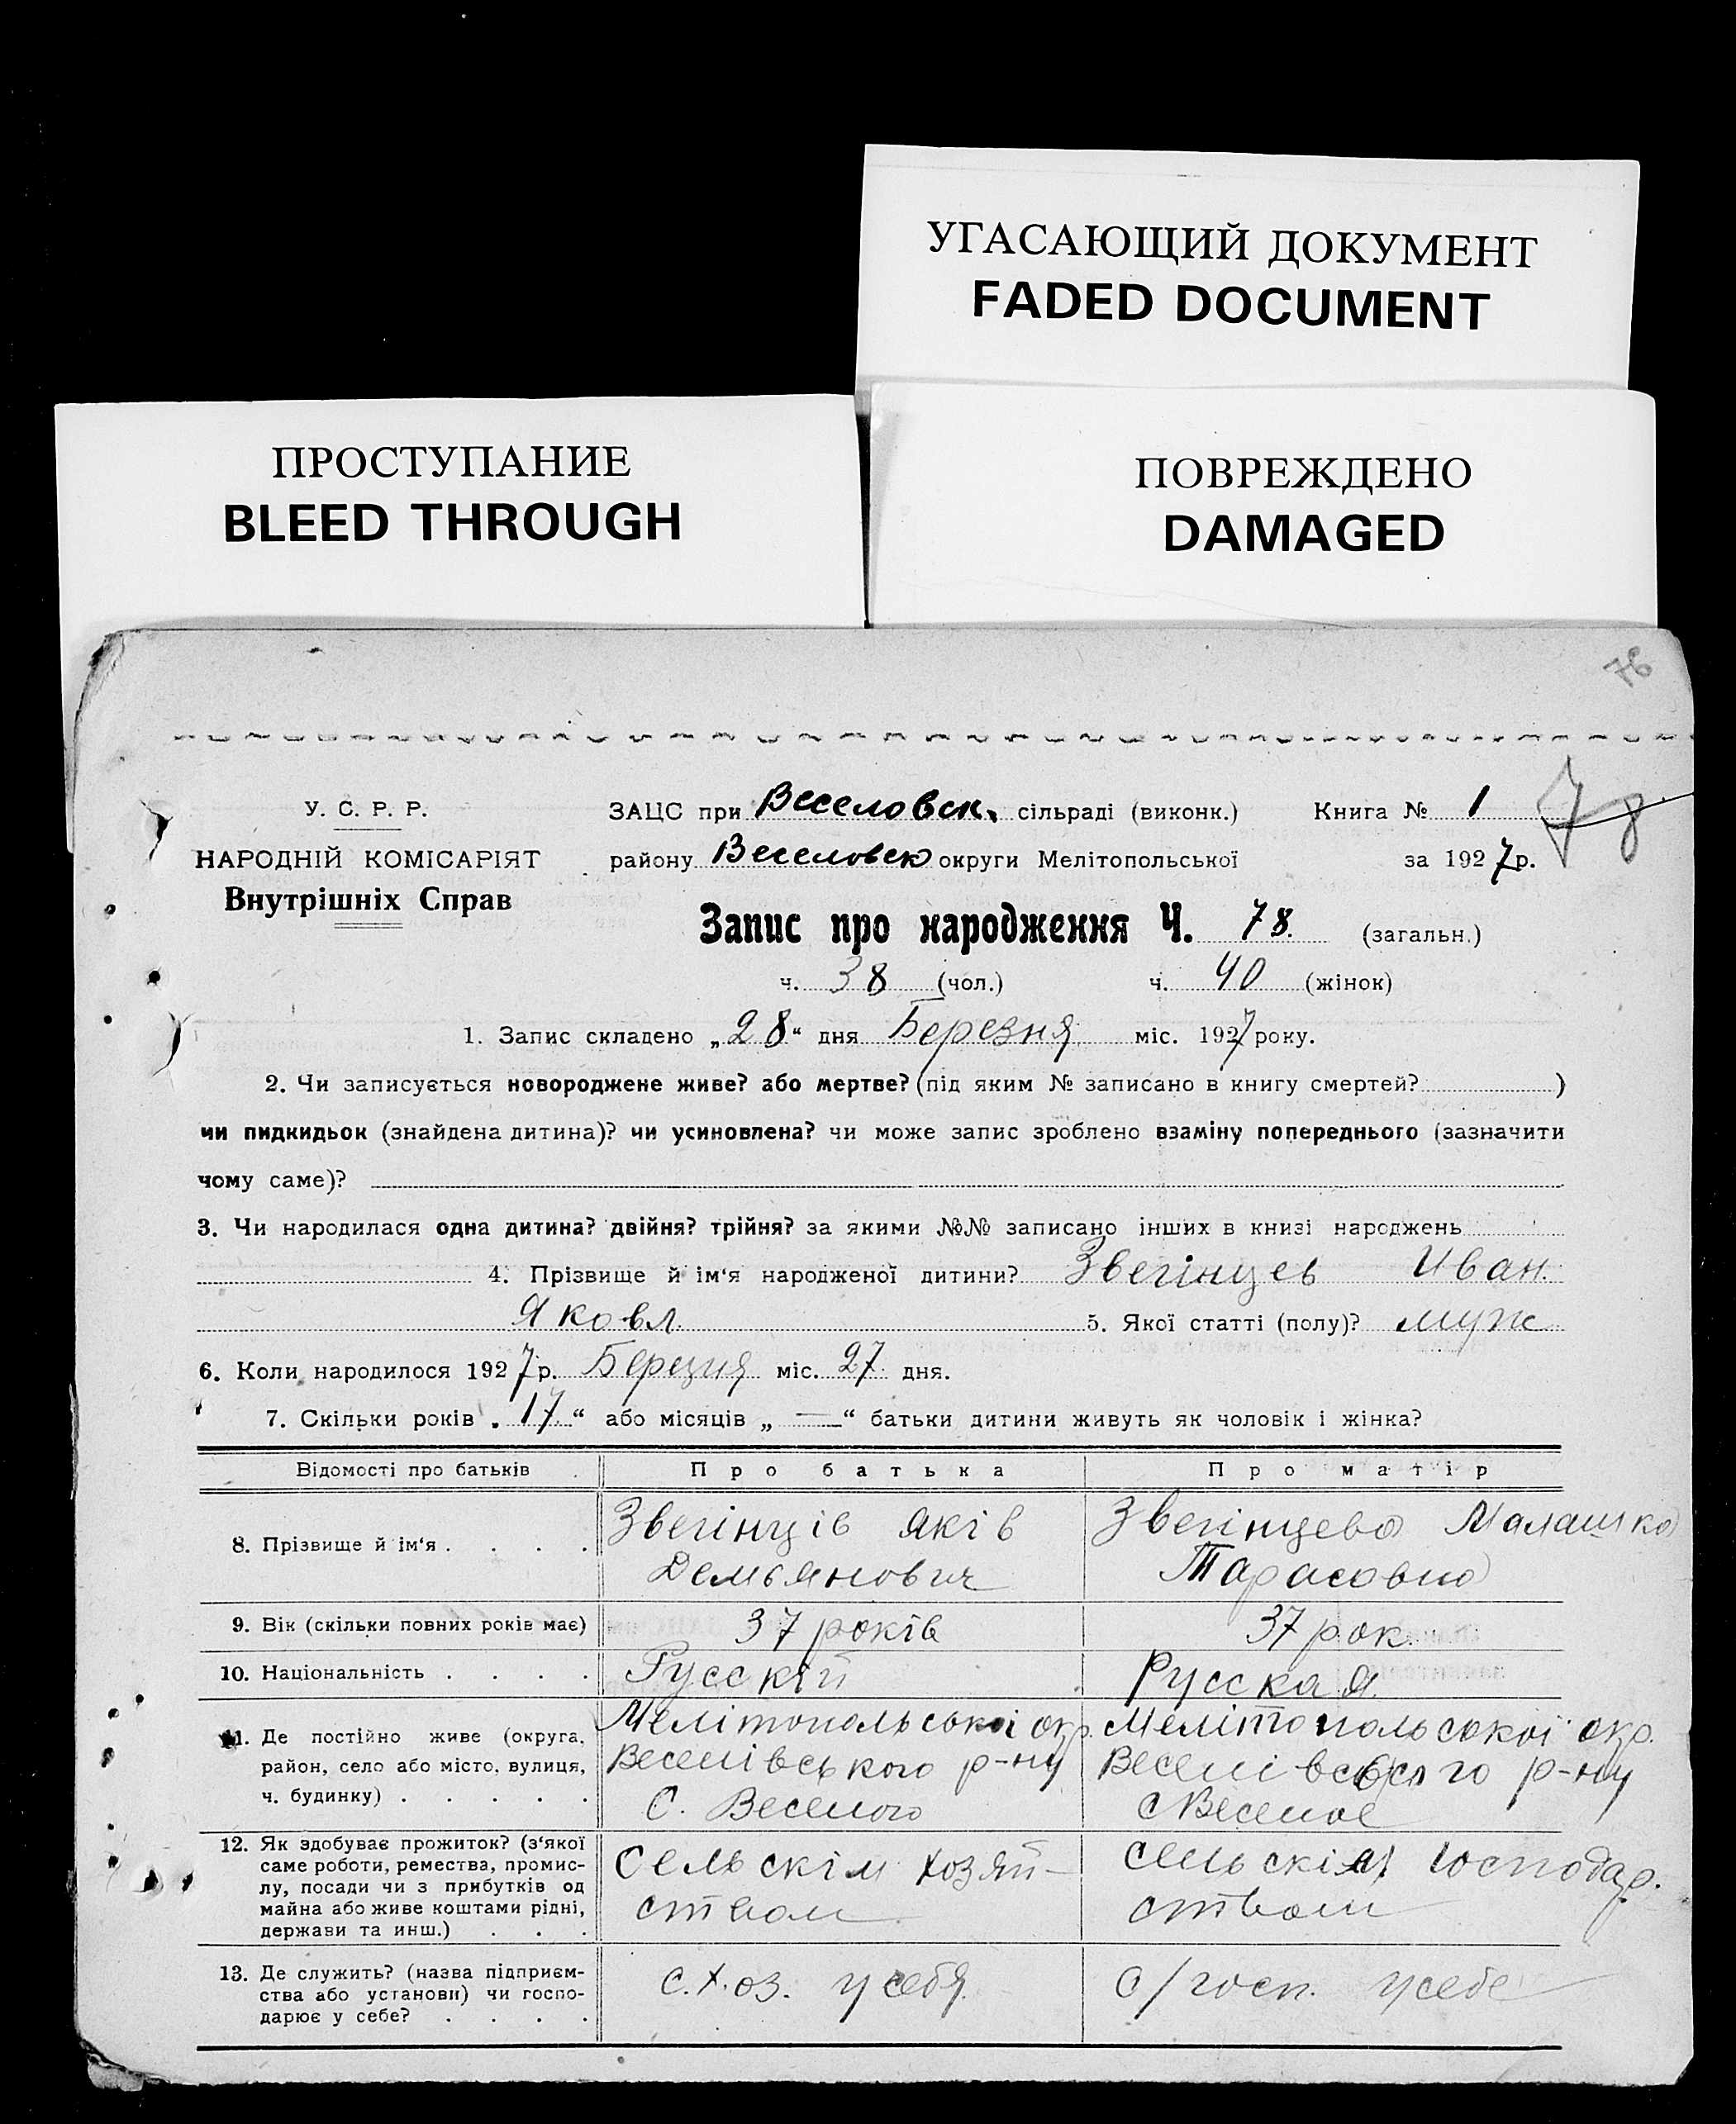 УГАСАЮЩИЙ ДОКУМЕНТ
FADED DOCUMENT
ПРОСТУПАНИЕ
BLEED THROUGH
ПОВРЕЖДЕНО
DAMAGED
76
78
У. С. Р. Р.
НАРОДНІЙ КОМІСАРІЯТ
Внутрішніх Справ
ЗАЦС при Веселовск. сільраді (виконк.) Книга № 1
району Веселовск округи Мелітопольської за 1927р.
Запис про народження Ч. 78. (загальн.)
ч. 38 (чол.) ч. 40 (жінок)
1. Запис складено „28“ дня Березня міс. 1927 року.
2. Чи записується новороджене живе? або мертве? (під яким № записано в книгу смертей? )
чи пидкидьок (знайдена дитина)? чи усиновлена? чи може запис зроблено взаміну попереднього (зазначити
чому саме)?
3. Чи народилася одна дитина? двійня? трійня? за якими №№ записано інших в книзі народжень
4. Прізвище й ім‘я народженої дитини? Звегінцев Иван
Яковл. 5. Якої статті (полу)? муж
6. Коли народилося 1927р. Березня міс. 27 дня.
7. Скільки років „17“ або місяців „—“ батьки дитини живуть як чоловік і жінка?
Відомості про батьків Про батька Про матір
8. Прізвище й ім‘я . . . . Звегінців Яків Звегінцева Малашка
Демьянович Тарасовна
9. Вік (скільки повних років має) 37 років 37 рок.
10. Національність . . . . Русскій Русская
11. Де постійно живе (округа, Мелітопольської окр. Мелітопольської окр.
район, село або місто, вулиця, Веселівського р-ну Веселівського р-ну
ч. будинку) . . . . . С. Веселого С Веселое
12. Як здобуває прожиток? (з‘якої
саме роботи, ремества, промис- Сельскім хозяй- Сельскім господар.
лу, посади чи з прибутків од
майна або живе коштами рідні, ством ством
держави та инш.) . . .
13. Де служить? (назва підприєм- с.хоз. у себя с/госп. у себе
ства або установи) чи госпо-
дарює у себе? . . . .